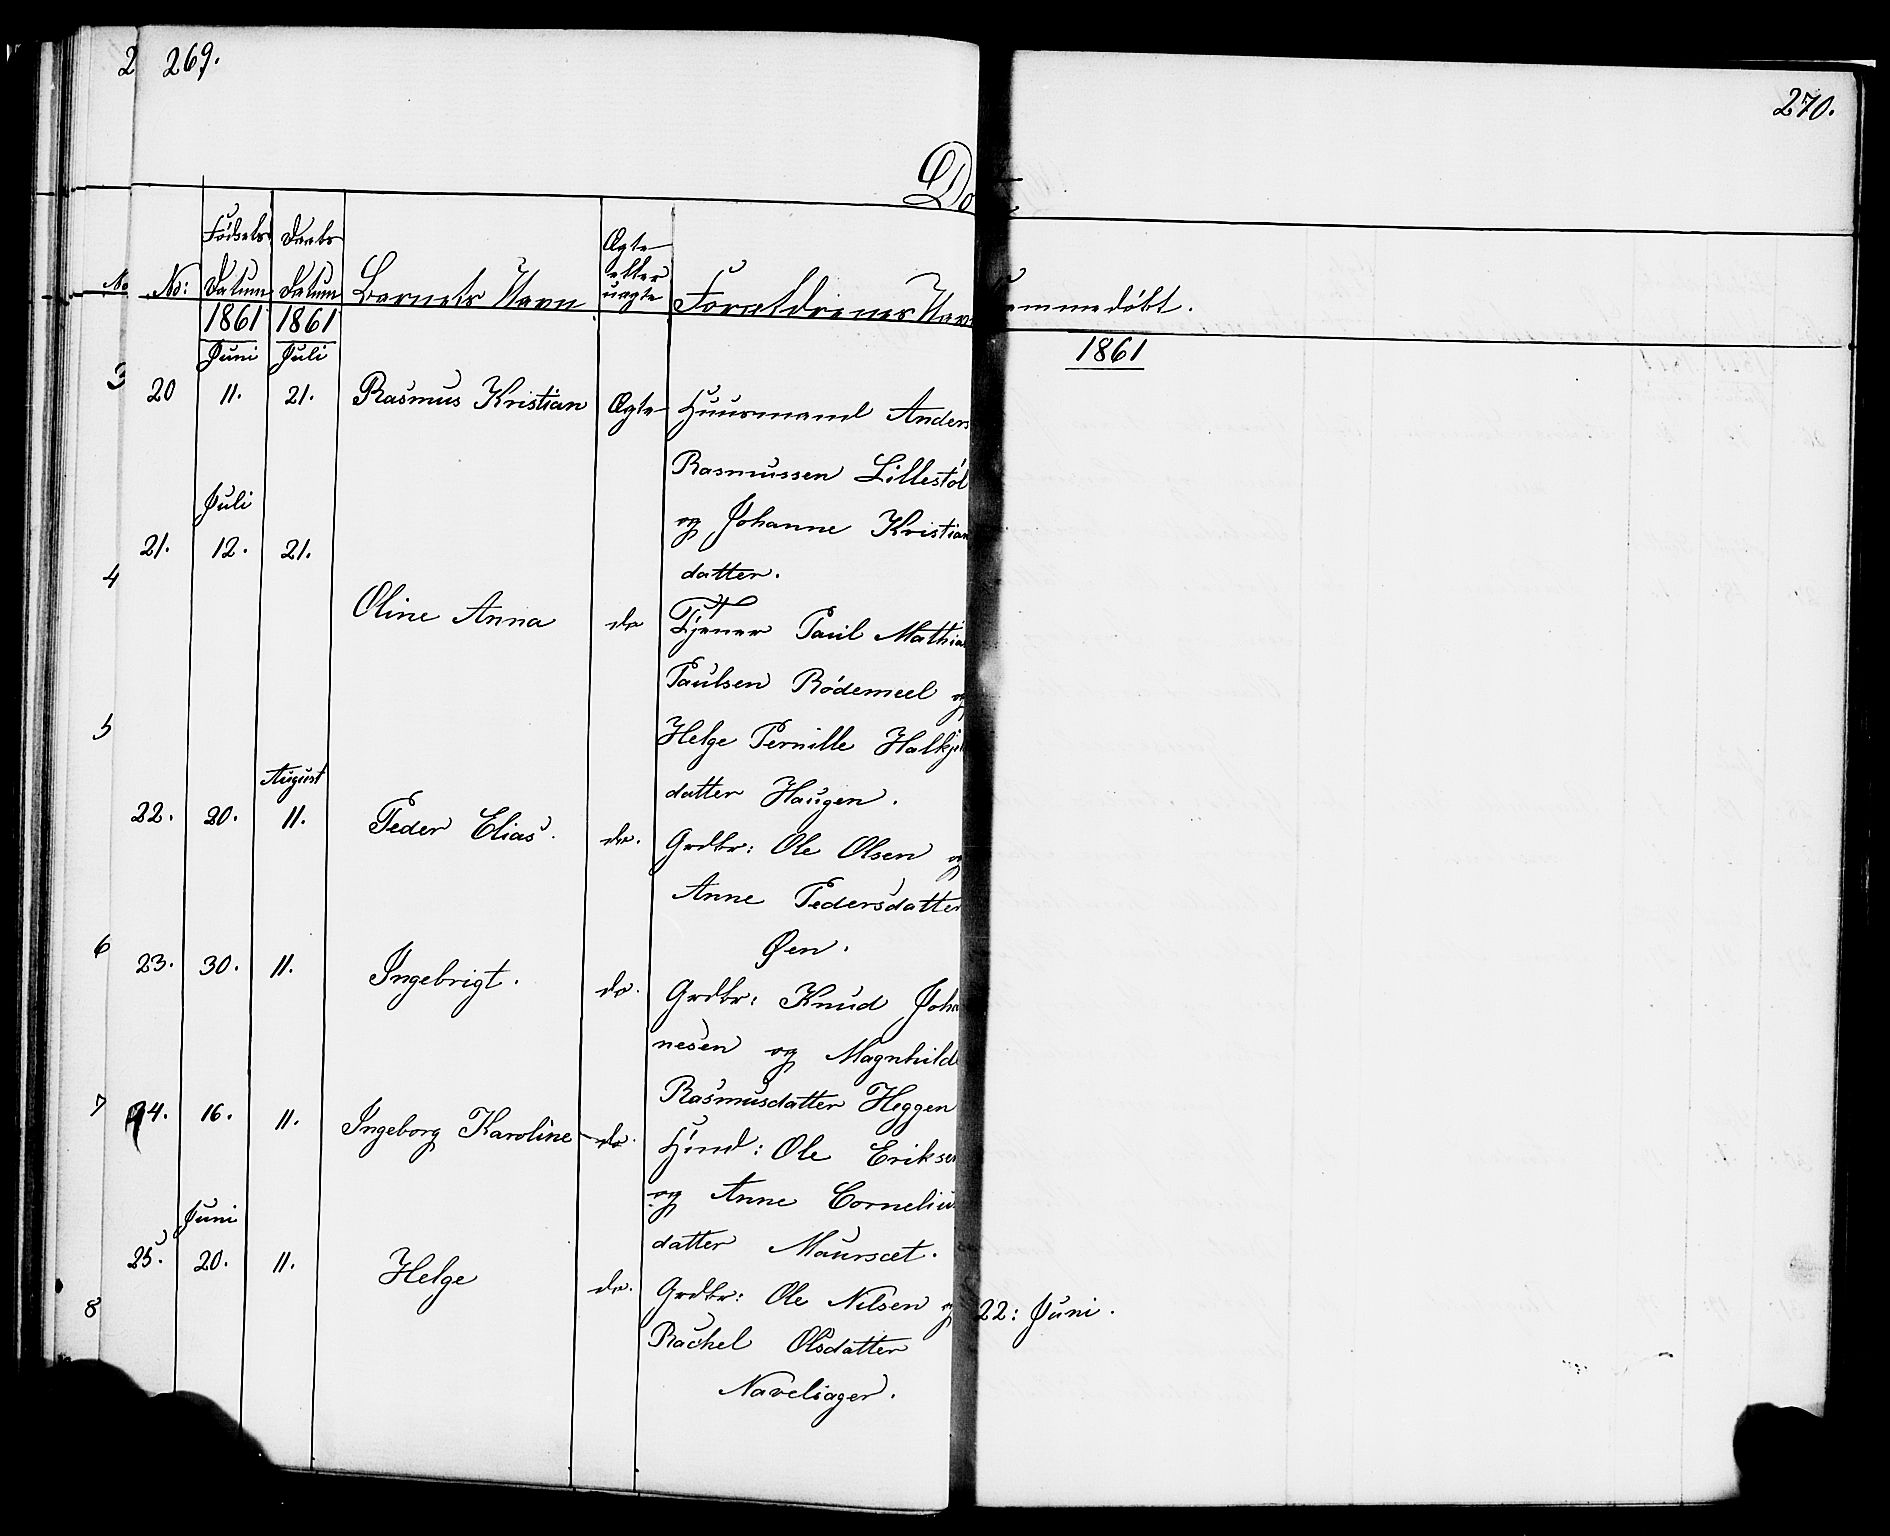 2 269.
270.
Do
Fødsels Daabs Ægte
eller
No No: Datum Datum Barnets Navn uægte Forældrenes Nav
emmedøbt.
1861 1861
1861
Juni Juli
3 20 11. 21. Rasmus Kristian Ægte Huusmand Anders
Rasmussen Lillestøl
Juli
og Johanne Kristian
21. 12. 21.
datter.
4
Oline Anna do Tjener Paul Mathia
Paulsen Rødemeel og
5
Helge Pernille Halkje
August
datter Haugen.
22. 20. 11. Peder Elias. do. Grdbr: Ole Olsen og
Anne Pedersdatter
Øen.
6 23. 30. 11. Ingebrigt. do. Grdbr: Knud Joha
nesen og Magnhild
Rasmusdatter Heggen
7 24. 16. 11. Ingeborg Karoline do. Hmd: Ole Erikse
og Anne Cornelius
Juni
datter Maurset.
25. 20. 11. Helge do. Grdbr: Ole Nilsen og 22: Juni.
8
Rachel Olsdatter
Navelsager.